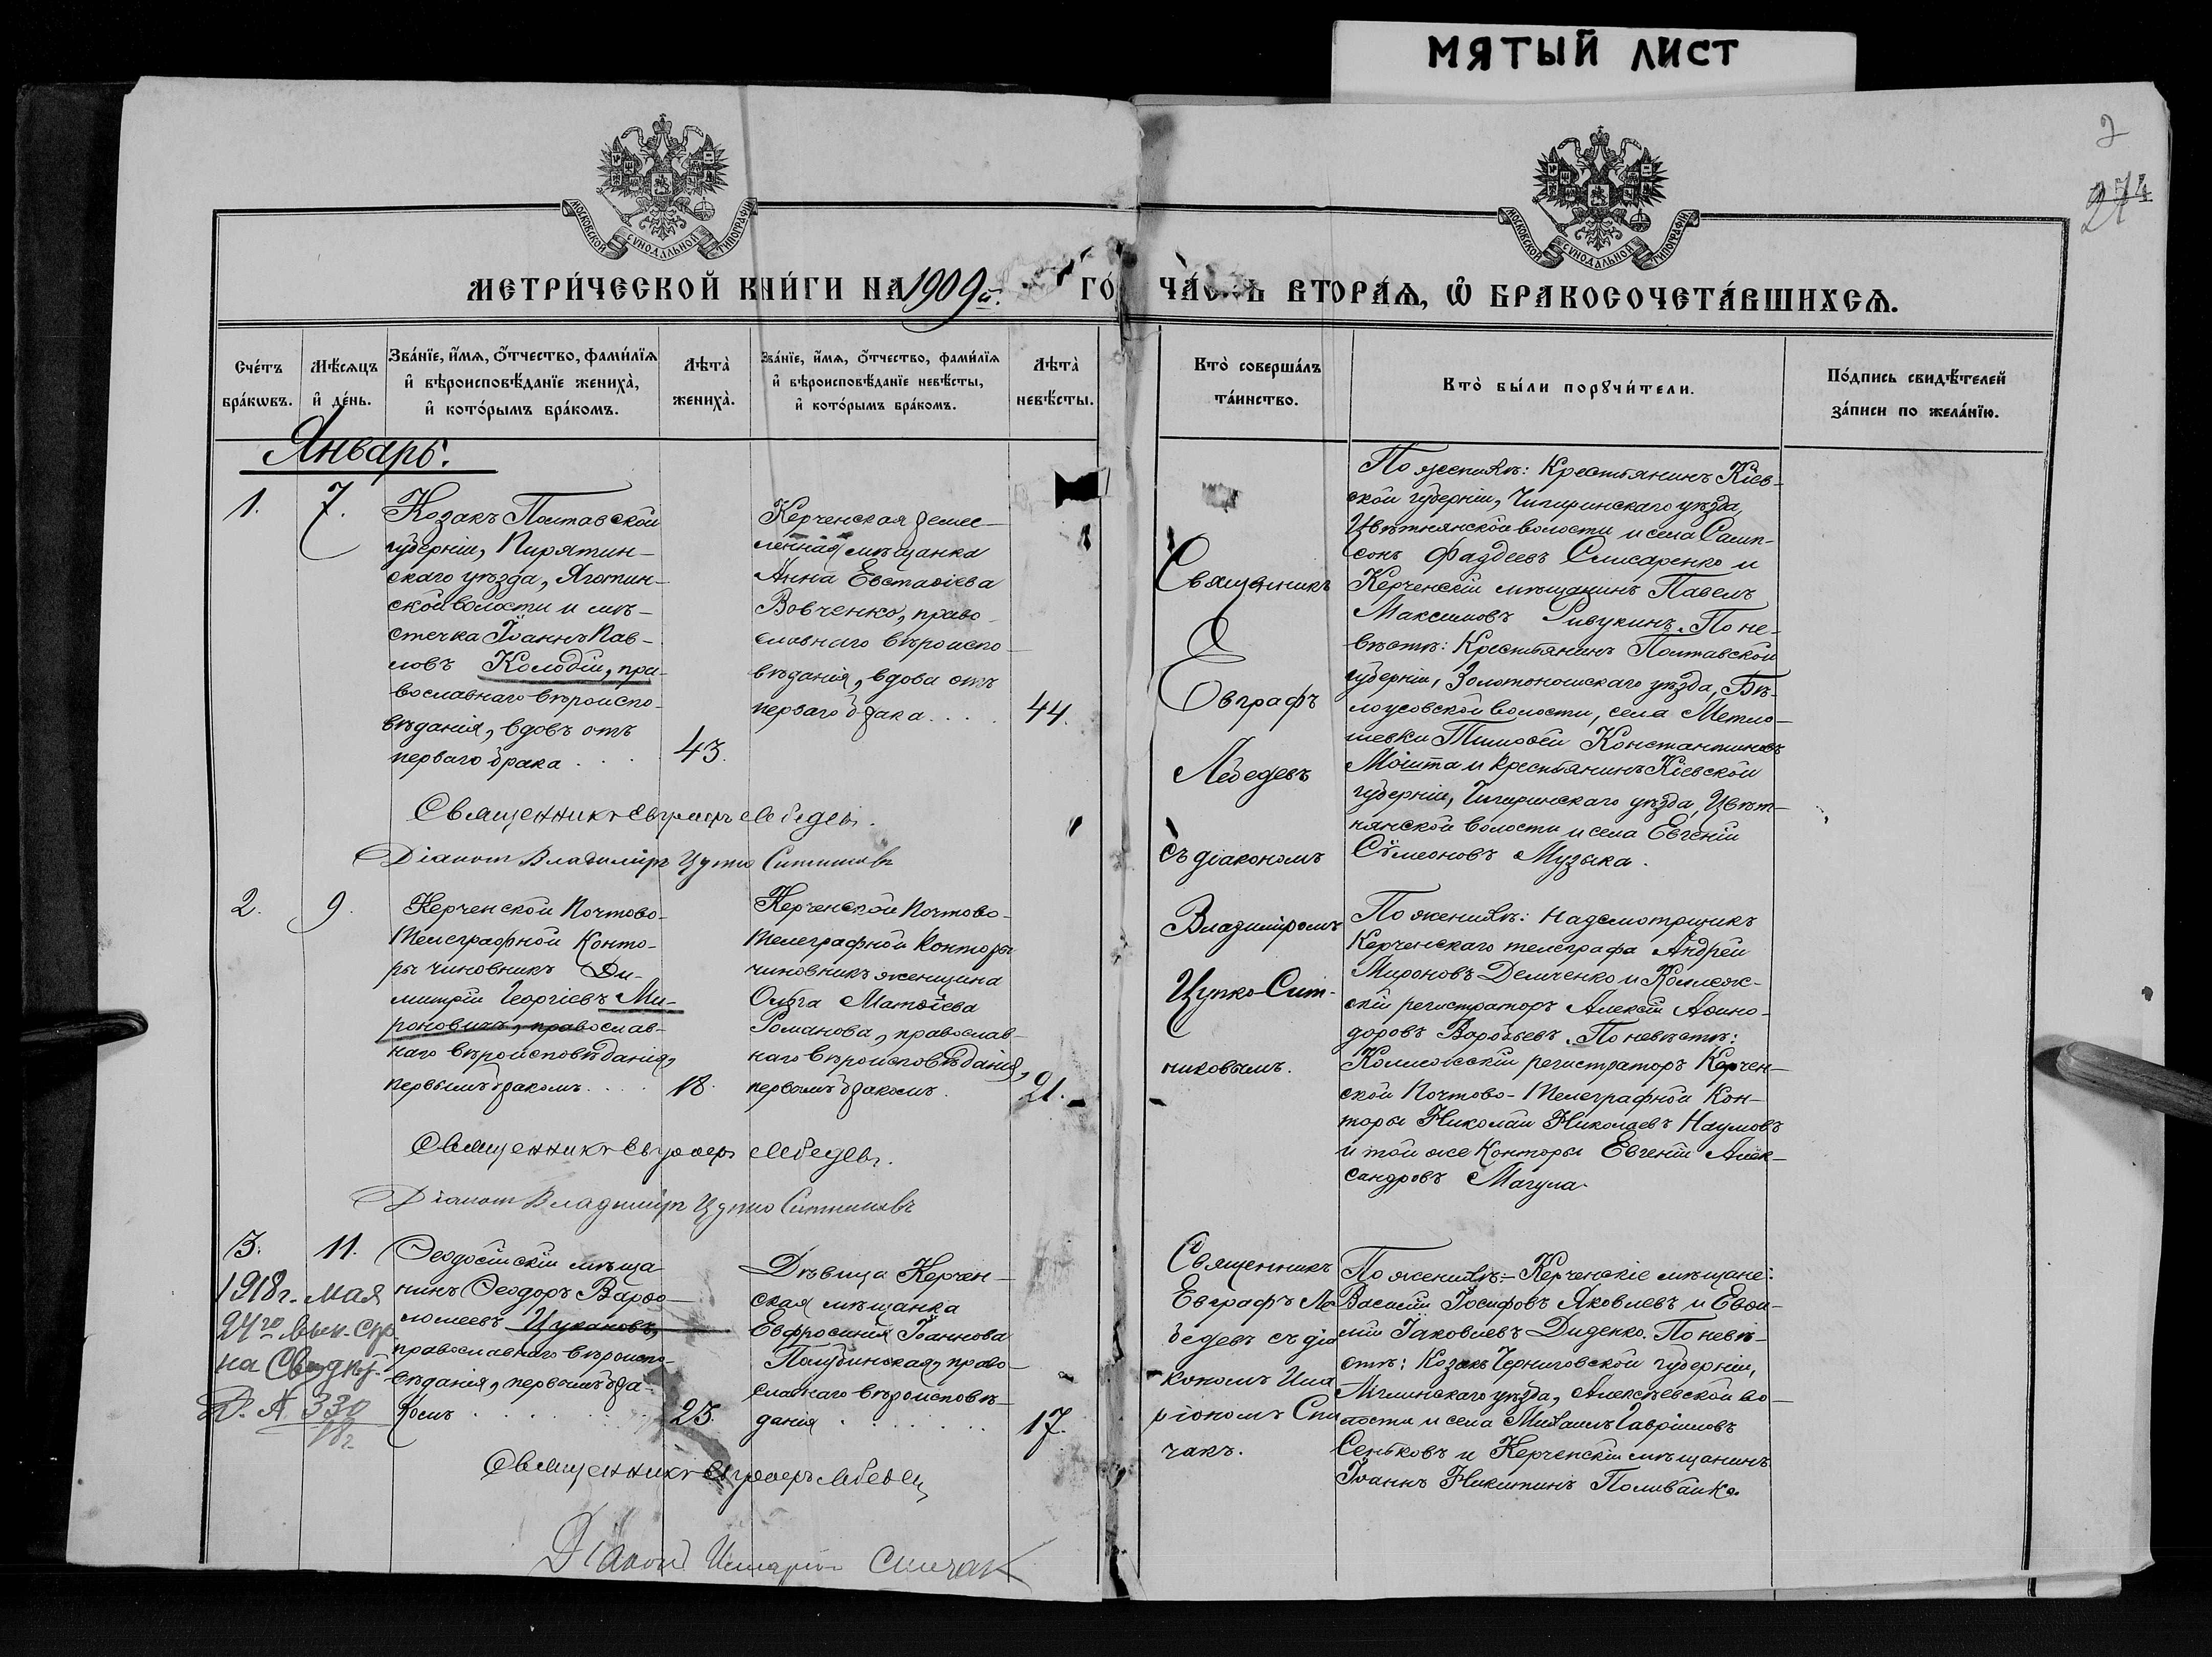 МЯТЫЙ ЛИСТ
2
274
МОСКОВСКОЙ СѴНОДАЛЬНОЙ ТИПОГРАФІИ
МОСКОВСКОЙ СѴНОДАЛЬНОЙ ТИПОГРАФІИ
МЕТРИ́ЧЕСКОЙ КНИ́ГИ НА 1909й. ГО
ЧА́СТЬ ВТОРА́Ѧ, Ѽ БРАКОСОЧЕТА́ВШИХСѦ.
Сче́тъ бра́кωвъ.
Мѣ́сѧцъ и҆ де́нь.
Зва́нїе, и҆́мѧ, ѻ҆́тчество, фами́лїѧ
и҆ вѣроисповѣ́данїе жениха̀,
и҆ кото́рымъ бра́комъ.
Лѣта̀ жениха̀.
Зва́нїе, и҆́мѧ, ѻ҆́тчество, фами́лїѧ
и҆ вѣроисповѣ́данїе невѣ́сты,
и҆ кото́рымъ бра́комъ.
Лѣта̀ невѣ́сты.
Кто̀ соверша́лъ та́инство.
Кто̀ бы́ли порꙋчи́тели.
По́дпись свидѣ́телей за́писи по жела́нїю.
Январь.
1.
7.
Козакъ Полтавской
губерніи, Пирятин-
скаго уѣзда, Яготин-
ской волости и мѣ-
стечка Іоаннъ Пав-
ловъ Колодій, пра-
вославнаго вѣроиспо-
вѣданія, вдовъ отъ
перваго брака . . .
43.
Керченская ремес-
ленная мѣщанка
Анна Евстаѳіева
Вовченко, право-
славнаго вѣроиспо-
вѣданія, вдова отъ
перваго брака . . .
44.
Священникъ
Е
Евграфъ
Лебедевъ
съ діакономъ
Владиміромъ
Цупко-Сит-
никовымъ.
По женихѣ: Крестьянинъ Кіев-
ской губерніи, Чигиринскаго уѣзда,
Цвѣтнянской волости и села Самп-
сонъ Фаддеевъ Слисаренко и
Керченскій мѣщанинъ Павелъ
Максимовъ Ривукинъ. По не-
вѣстѣ: Крестьянинъ Полтавской
губерніи, Золотоношскаго уѣзда, Бѣ-
лоусовской волости, села Метло-
шевки Тимоѳей Константиновъ
Мошта и крестьянинъ Кіевской
губерніи, Чигиринскаго уѣзда, Цвѣт-
нянской волости и села Евгеній
Сѵмеоновъ Музыка.
Священникъ Евграфъ Лебедевъ.
Діаконъ Владиміръ Цупко Ситниковъ
2.
9.
Керченской Почтово-
Телеграфной Конто-
ры чиновникъ Ди-
митрій Георгіевъ Ми-
роновичъ, православ-
наго вѣроисповѣданія,
первымъ бракомъ . . . .
18.
Керченской Почтово-
Телеграфной Конторы
чиновникъ женщина
Ольга Матѳіева
Романова, православ-
наго вѣроисповѣданія,
первымъ бракомъ.
21.
По женихѣ: Надсмотрщикъ
Керченскаго телеграфа Андрей
Мироновъ Демченко и Коллеж-
скій регистраторъ Алексій Аѳино-
доровъ Воробьевъ. По невѣстѣ:
Коллежскій регистраторъ Керчен-
ской Почтово-Телеграфной Кон-
торы Николай Николаевъ Наумовъ
и той же Конторы Евгеній Алек-
сандровъ Магула.
Священникъ Евграфъ Лебедевъ.
Діаконъ Владиміръ Цупко Ситниковъ
3.
11.
1918г. мая
24го вып. спр.
на
№ 330
18г.
Ѳеодосійскій мѣща-
нинъ Ѳеодоръ Варѳо-
ломеевъ Цукановъ,
православнаго вѣроиспо-
вѣданія, первымъ бра-
комъ . . . . . .
25.
Дѣвица Керчен-
ская мѣщанка
Евфросинія Іоаннова
Полубинская, право-
славнаго вѣроисповѣ-
данія . . . . . .
17.
Священникъ
Евграфъ Ле-
бедевъ съ діа-
кономъ Ила-
ріономъ Спи-
чакъ.
По женихѣ: Керченскіе мѣщане:
Василій Іосифовъ Яковлевъ и Евѳи-
мій Іаковлевъ Диденко. По невѣ-
стѣ: Козакъ Черниговской губерніи,
Мглинскаго уѣзда, Алексѣевской во-
лости и села Михаилъ Гавріиловъ
Сеньковъ и Керченскій мѣщанинъ
Іоаннъ Никитинъ Поливайко.
Священникъ Евграфъ Лебедевъ
Діаконъ Иларіонъ Спичак